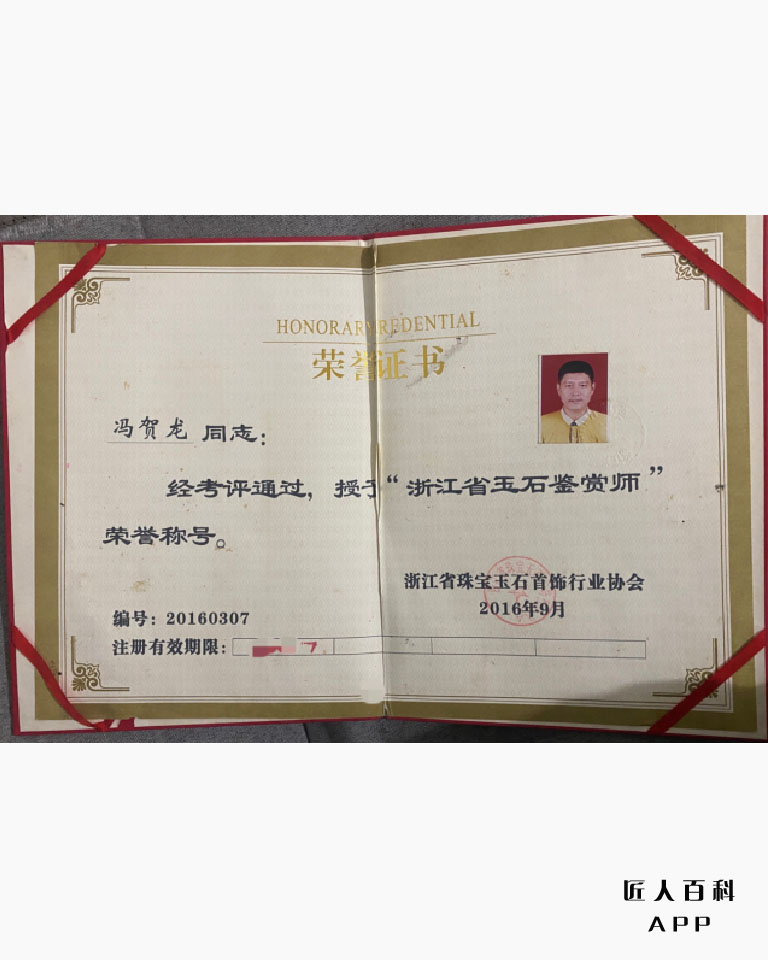 HONORARY CREDENTIAL
荣誉证书
冯贺龙 同志：
经考评通过，授予“浙江省玉石鉴赏师”
荣誉称号。
浙江省珠宝玉石首饰行业协会
2016年9月
编号：20160307
注册有效期限：
匠人百科
APP